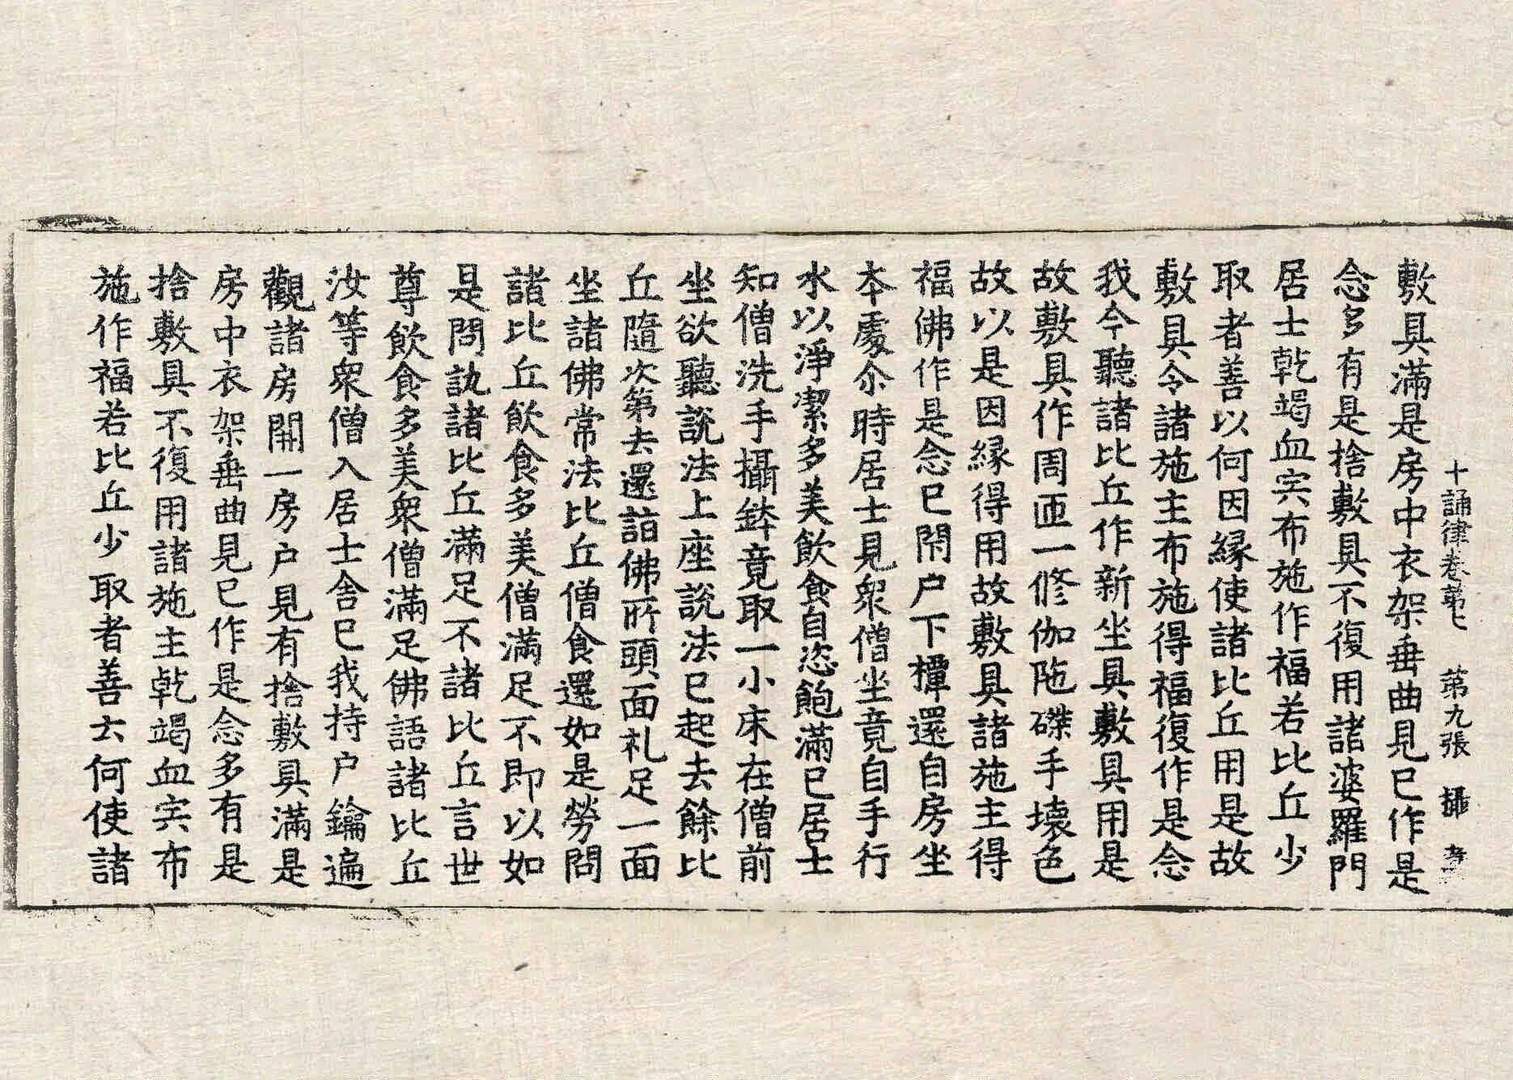 十誦律卷第七 第九張 攝
敷具滿是房中衣架垂曲見已作是
念多有是捨敷具不復用諸婆羅門
居士乾竭血宍布施作福若比丘少
取者善以何因緣使諸比丘用是故
敷具令諸施主布施得福復作是念
我今聽諸比丘作新坐具敷具用是
故敷具作周匝一修伽陁磔手壞色
故以是因緣得用故敷具諸施主得
福佛作是念已閇户下橝還自房坐
本處尒時居士見衆僧坐竟自手行
水以淨潔多美飲食自恣飽滿已居士
知僧洗手攝鉢竟取一小床在僧前
坐欲聽說法上座說法已起去餘比
丘隨次第去還詣佛所頭面礼足一面
坐諸佛常法比丘僧食還如是勞問
諸比丘飲食多美僧滿足不即以如
是問訊諸比丘滿足不諸比丘言世
尊飲食多美衆僧滿足佛語諸比丘
汝等衆僧入居士舍已我持户鑰遍
觀諸房開一房户見有捨敷具滿是
房中衣架垂曲見已作是念多有是
捨敷具不復用諸施主乾竭血宍布
施作福若比丘少取者善云何使諸